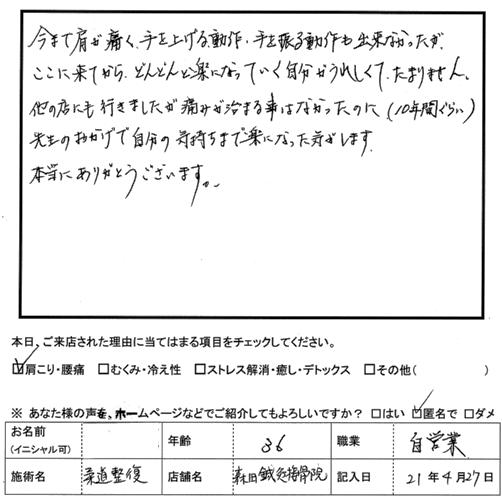 今まで肩が痛く、手を上げる動作、手を振る動作も出来なかったが、
ここに来てから、どんどんと楽になっていく自分がうれしくて、たまりません。
他の店にも行きましたが痛みが治まる事はなかったのに(10年間ぐらい)
先生のおかげで自分の気持ちまで楽になった気がします。
本当にありがとうございます。
本日、ご来店された理由に当てはまる項目をチェックしてください。
☑肩こり・腰痛 □むくみ・冷え性 □ストレス解消・癒し・デトックス □その他( )
※ あなた様の声を、ホームページなどでご紹介してもよろしいですか? □はい ☑匿名で □ダメ
お名前 年齢 36 職業 自営業
(イニシャル可)
施術名 柔道整復 店舗名 森田鍼灸接骨院 記入日 21年4月27日